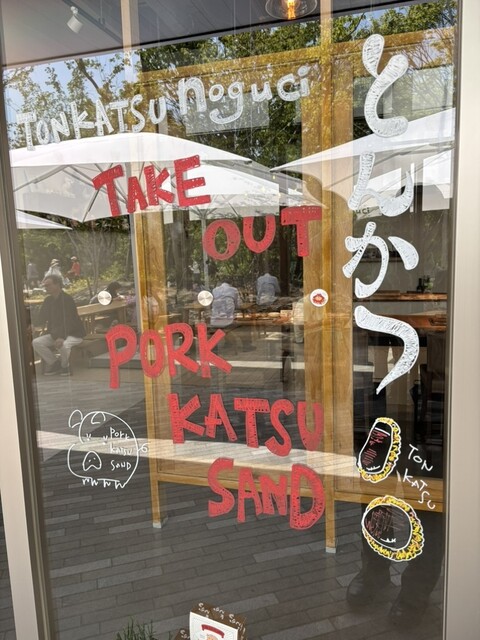 TONKATSU noguci
とんかつ
TAKE
OUT
PORK
KATSU
SAND
PORK
KATSU
SAND
TON
KATSU